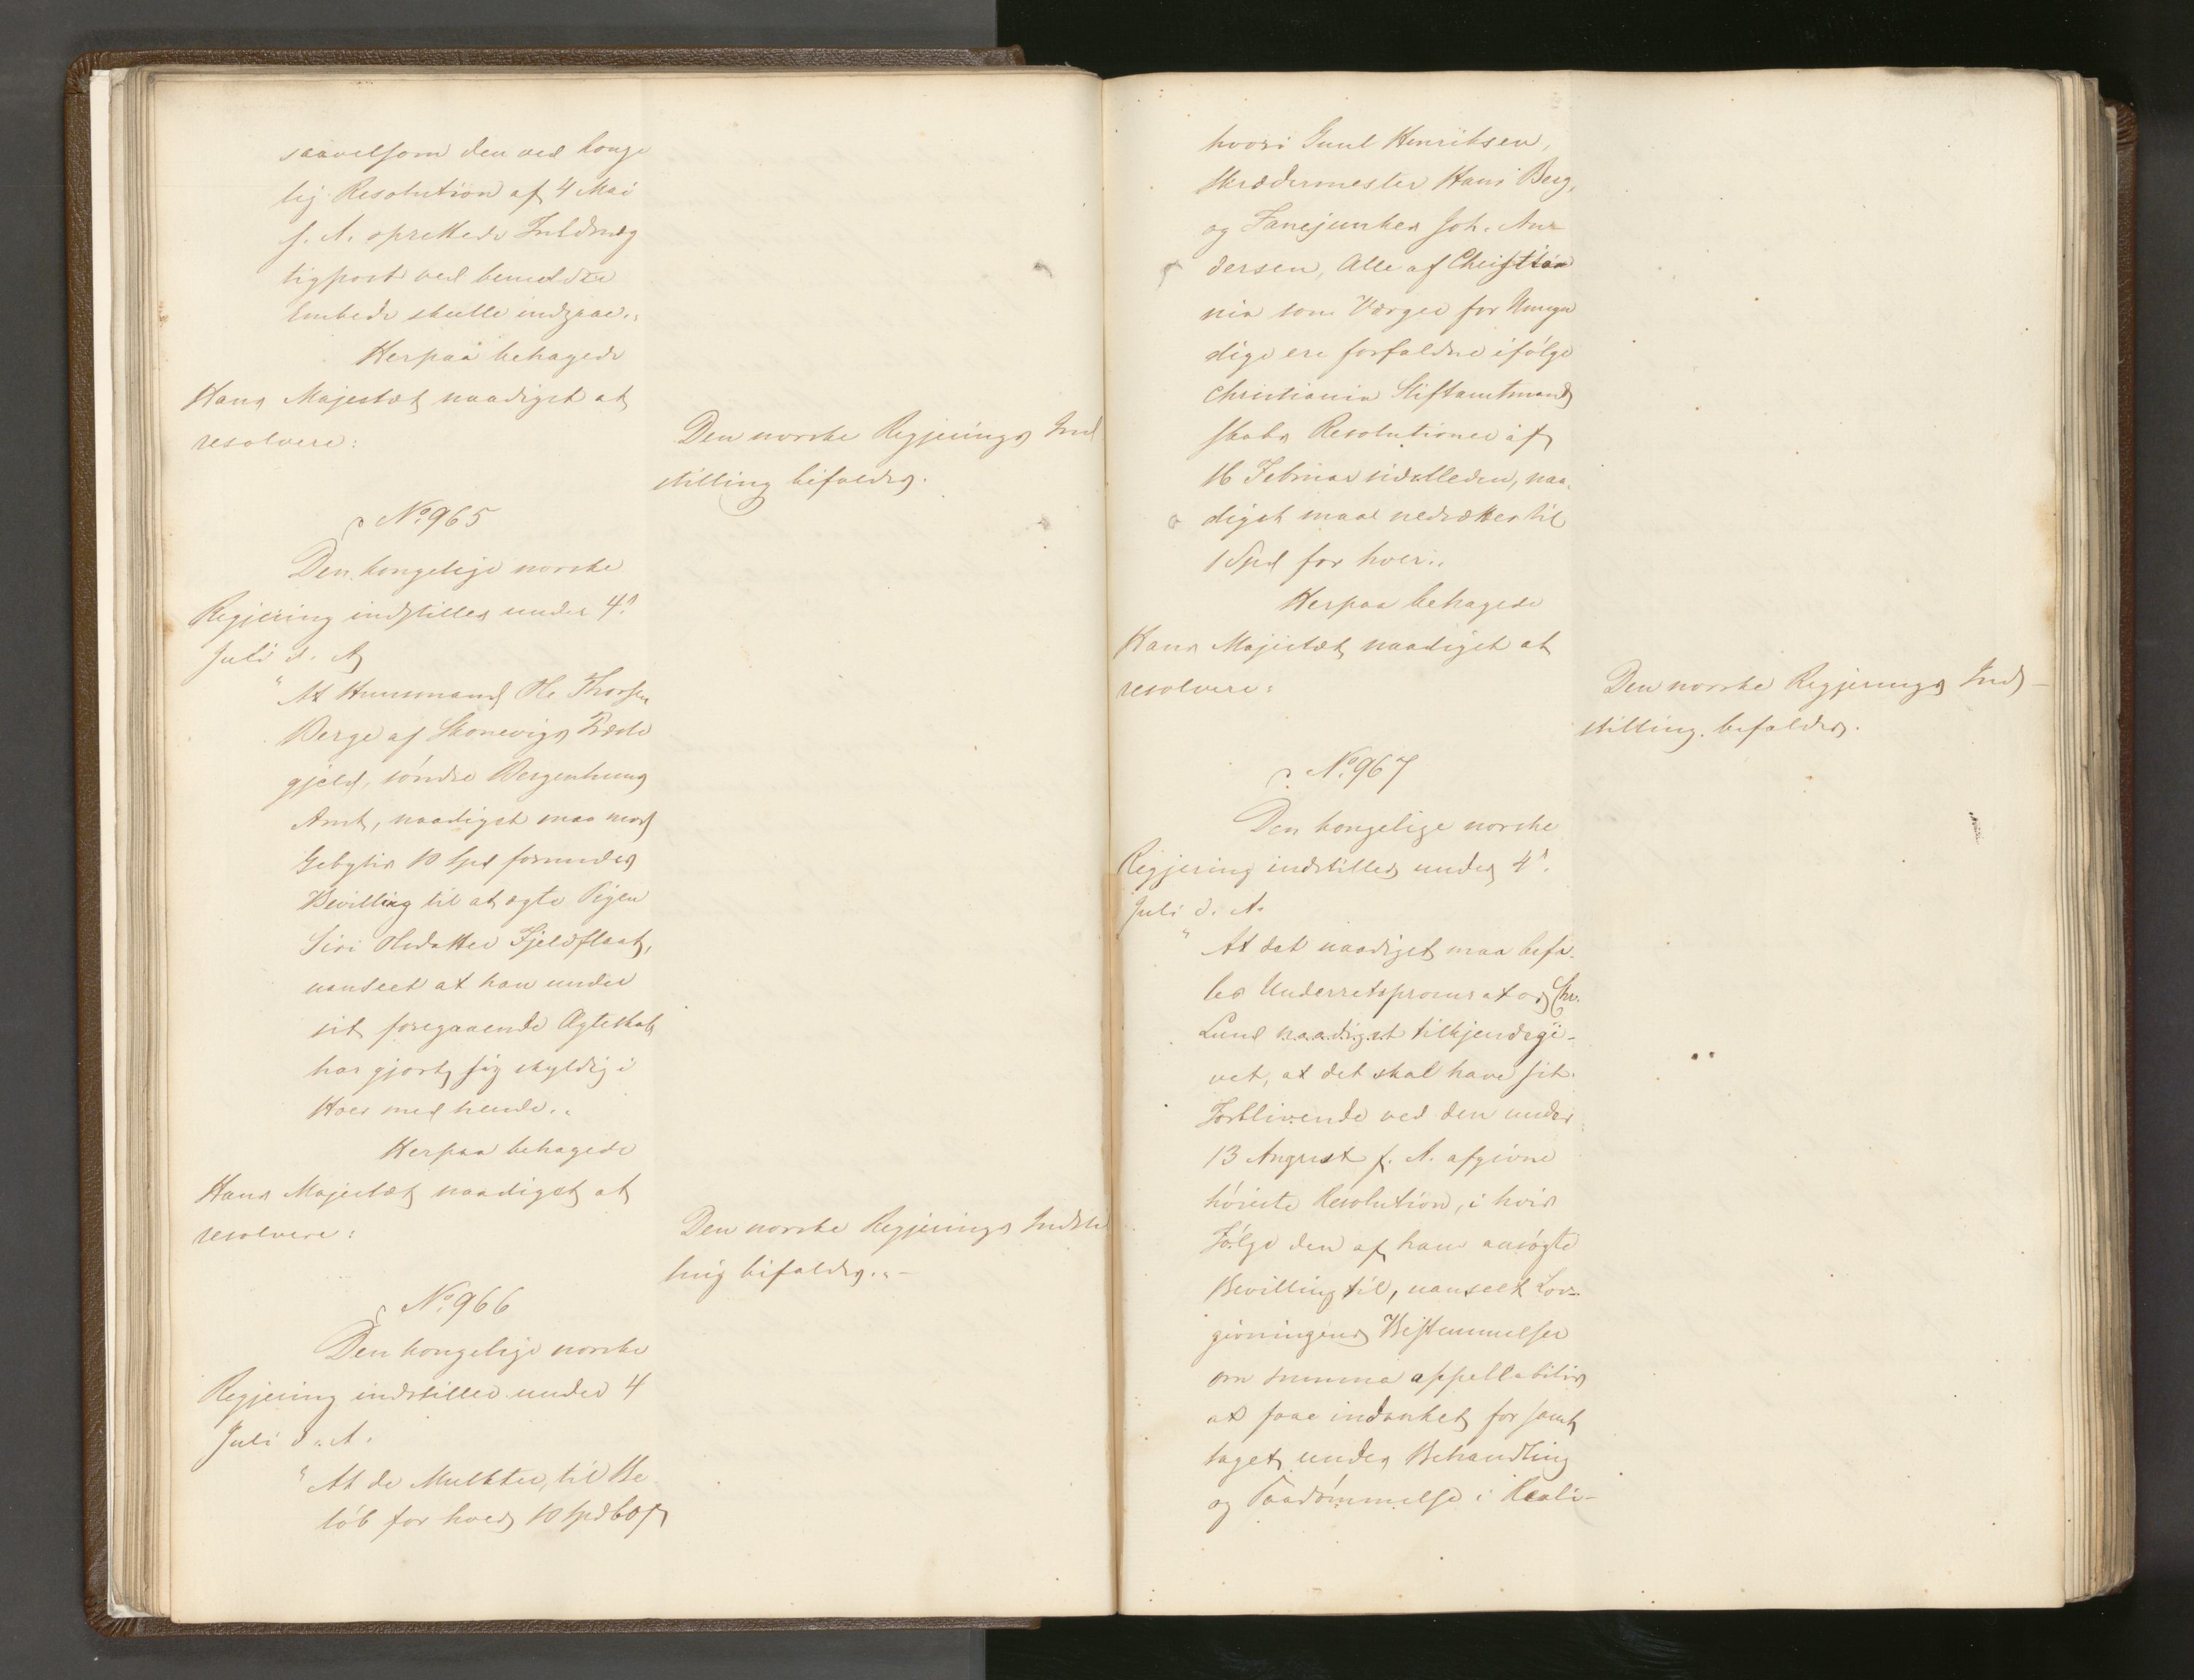 saavelsom den ved konge
lig Resolution af 4 Mai
f. A. oprettede Fuldmæg
tigpost ved bemeldte
Embede skulle indgaae."
Herpaa behagede
Hans Majestæt naadigst at
resolvere:
Den norske Regjerings Ind
stilling bifaldes.
No. 965
Den kongelige norske
Regjering indstiller under 4d.
Juli d. A.
"At Huusmand Ole Thorsen
Berge af Skonevigs Præste
gjeld, söndre Bergenhuus
Amt, naadigst maa mod
Gebyhr 10 Spd forundes
Bevilling til at ægte Pigen
Siri Olsdatter Fjeldflaat,
uanseet at han under
sit foregaaende Ægteskab
har gjort sig skyldig i
Hoer med hende."
Herpaa behagede
Hans Majestæt naadigst at
resolvere:
Den norske Regjerings Indstil
ling bifaldes."-
No. 966
Den kongelige norske
Regjering indstiller under 4
Juli d. A.
"At de Mulkter, til Be
löb for hver 10 Spd 60 s
hvori Gunl Henriksen,
Skrædermester Hans Berg,
og Fanejunker Joh. An-
dersen, Alle af Christia
nia som Værger for Umyn
dige ere forfaldne ifölge
Christiania Stiftamtmand
skabs Resolutioner af
16 Februar sidstleden, naa-
digst maae nedsættes til
1 Spd for hver."
Herpaa behagede
Hans Majestæt naadigst at
resolvere:
Den norske Regjerings Ind-
stilling bifaldes.
No. 967
Den kongelige norske
Regjering indstiller under 4d.
Juli d. A.
"At det naadigst maa befa-
les Underretsprocurator Chr.
Lund naadigst tilkjendegi-
vet, at det skal have sit
Forblivende ved den under
13 August f. A. afgivne
höieste Resolution, i hvis
Fölge den af ham ansögte
Bevilling til, uanseet Lov-
givningens Bestemmelser
om summa appellabilis
at faae indanket for samt
taget under Behandling
og Paadömmelse i Reali-